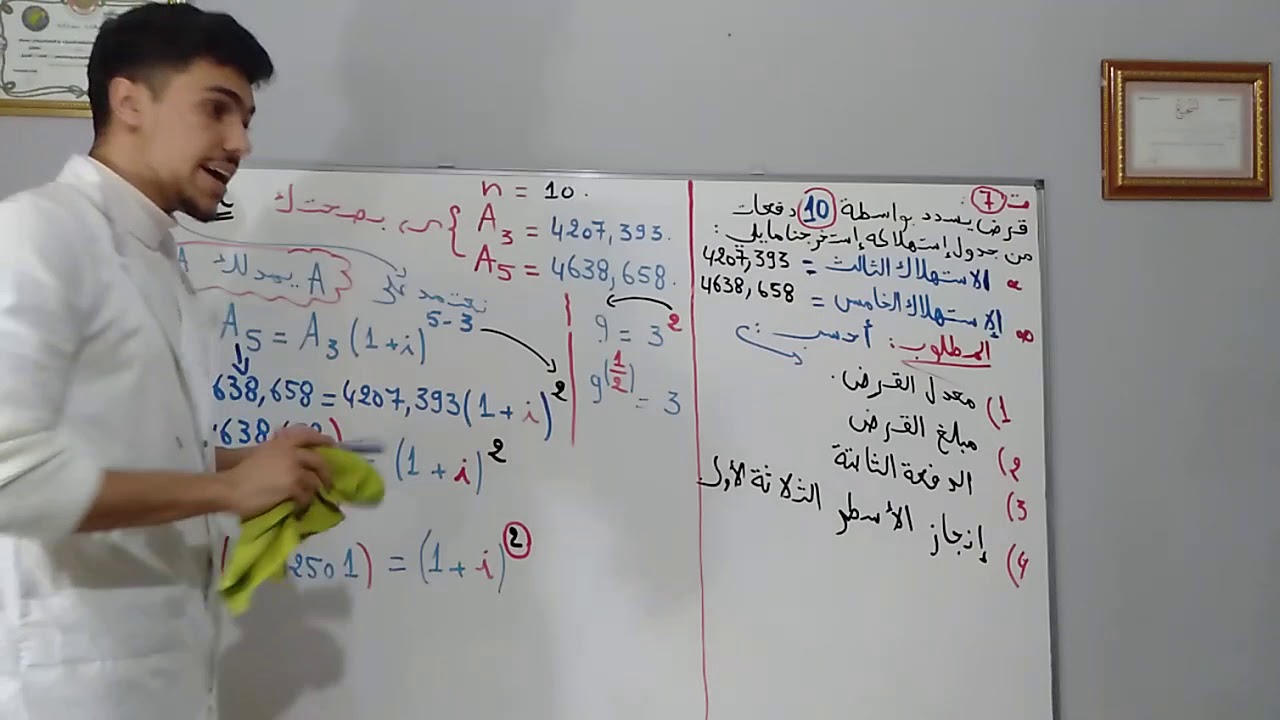 ت 7:
قرض يسدد بواسطة 10 دفعات
من جدول إستهلاكه إستخرجنا مايلي:
الاستهلاك الثالث = 4207,393
الإستهلاك الخامس = 4638,658
المطلوب: أحسب:
1) معدل القرض.
2) مبلغ القرض
3) الدفعة الثابتة
4) إنجاز الأسطر الثلاثة الأولى
n = 10.
A3 = 4207,393.
A5 = 4638,658.
A بدلالة A
نعتمد على
A5 = A3 (1+i)^5-3
638,658 = 4207,393 (1 + i)^2
(1 + i)^2
2501) = (1 + i)^2
9 = 3^2
9^(1/2) = 3